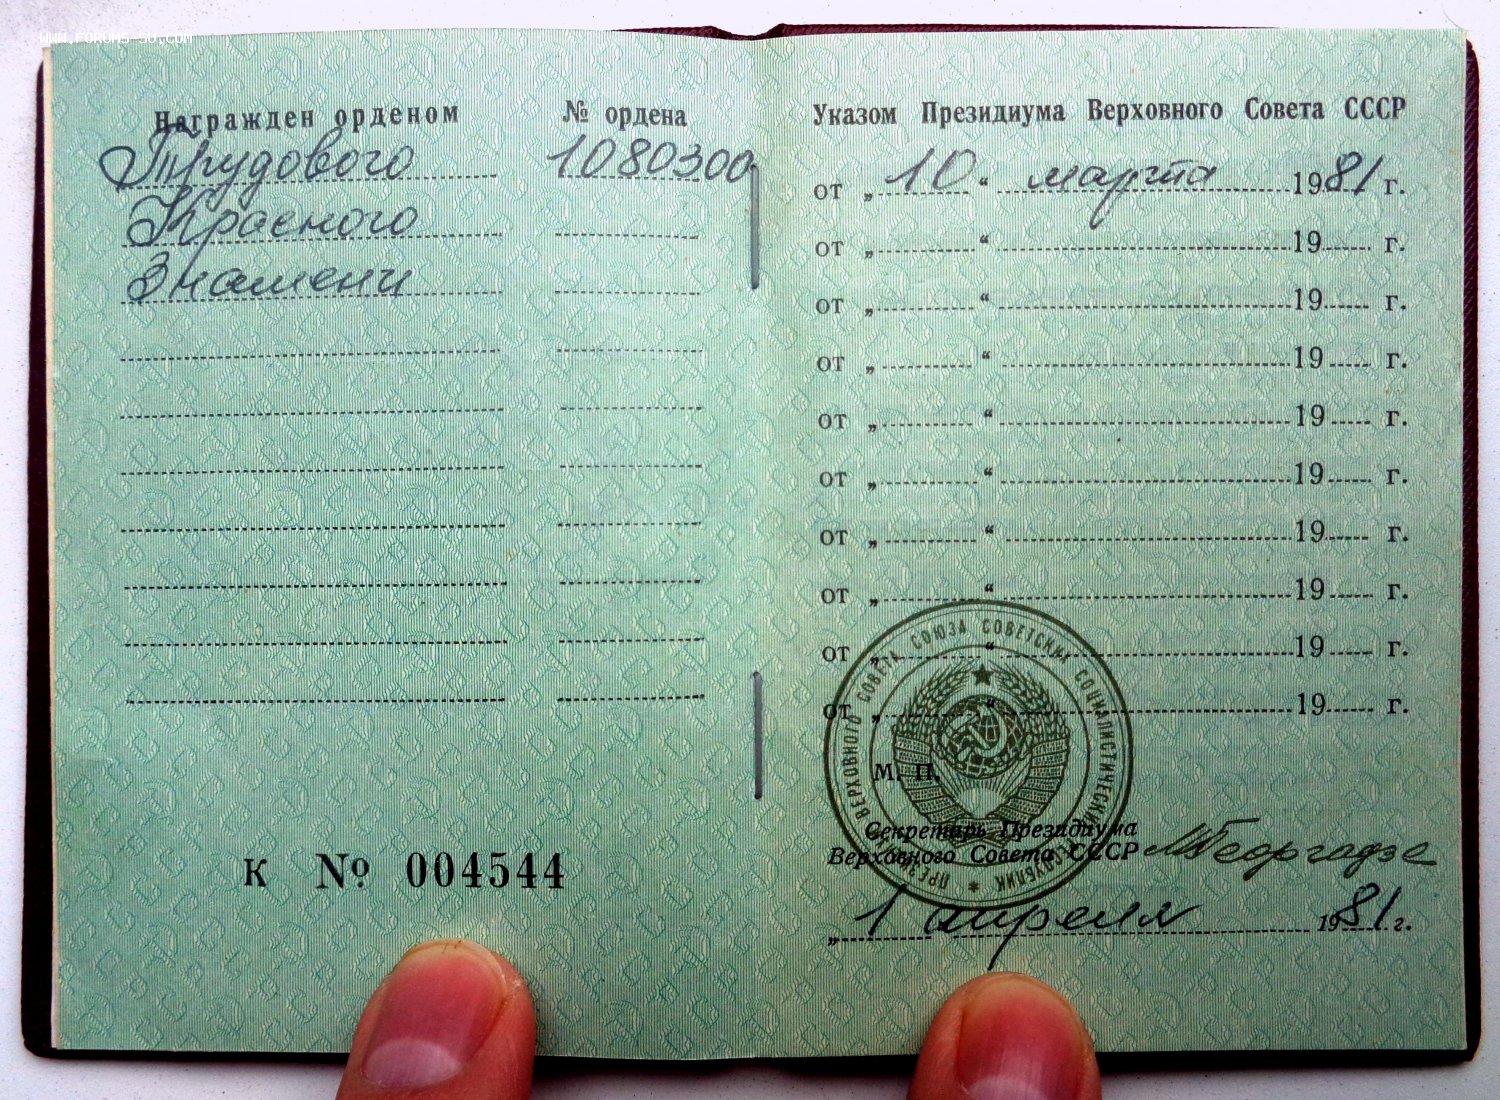 WWW.FORUMS-SU.COM
Награжден орденом
№ ордена
Трудового
1080300
Красного
Знамени
К № 004544
Указом Президиума Верховного Совета СССР
от „ 10 “ марта 1981 г.
от „ “ 19 г.
от „ “ 19 г.
от „ “ 19 г.
от „ “ 19 г.
от „ “ 19 г.
от „ “ 19 г.
от „ “ 19 г.
от „ “ 19 г.
от „ “ 19 г.
ПРЕЗИДИУМ ВЕРХОВНОГО СОВЕТА СОЮЗА СОВЕТСКИХ СОЦИАЛИСТИЧЕСКИХ РЕСПУБЛИК
М. П.
Секретарь Президиума
Верховного Совета СССР
МГеоргадзе
„ 1 апреля 1981 г.